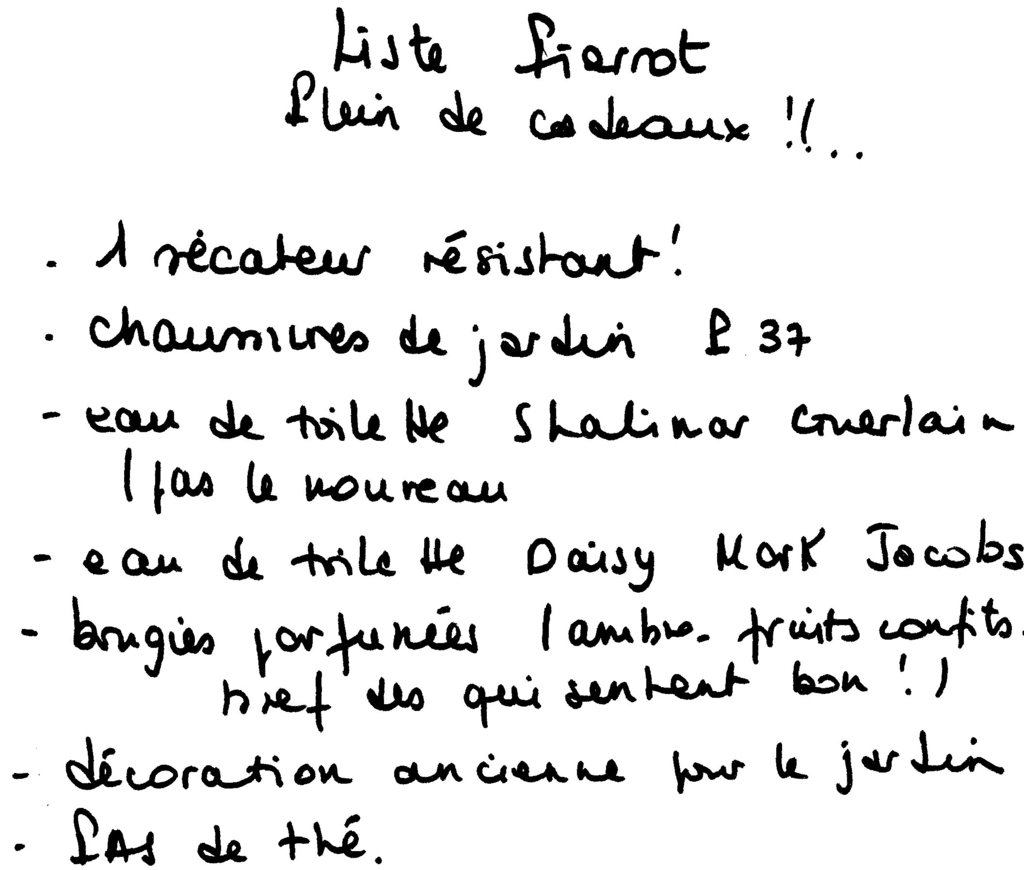 Liste Pierrot
Plein de cadeaux !!...
. 1 sécateur résistant !
. chaussures de jardin P 37
- eau de toilette Shalimar Guerlain
(pas le nouveau
- eau de toilette Daisy Mark Jacobs
- bougies parfumées (ambre. fruits confits.
bref des qui sentent bon !)
- décoration ancienne pour le jardin
. PAS de thé.